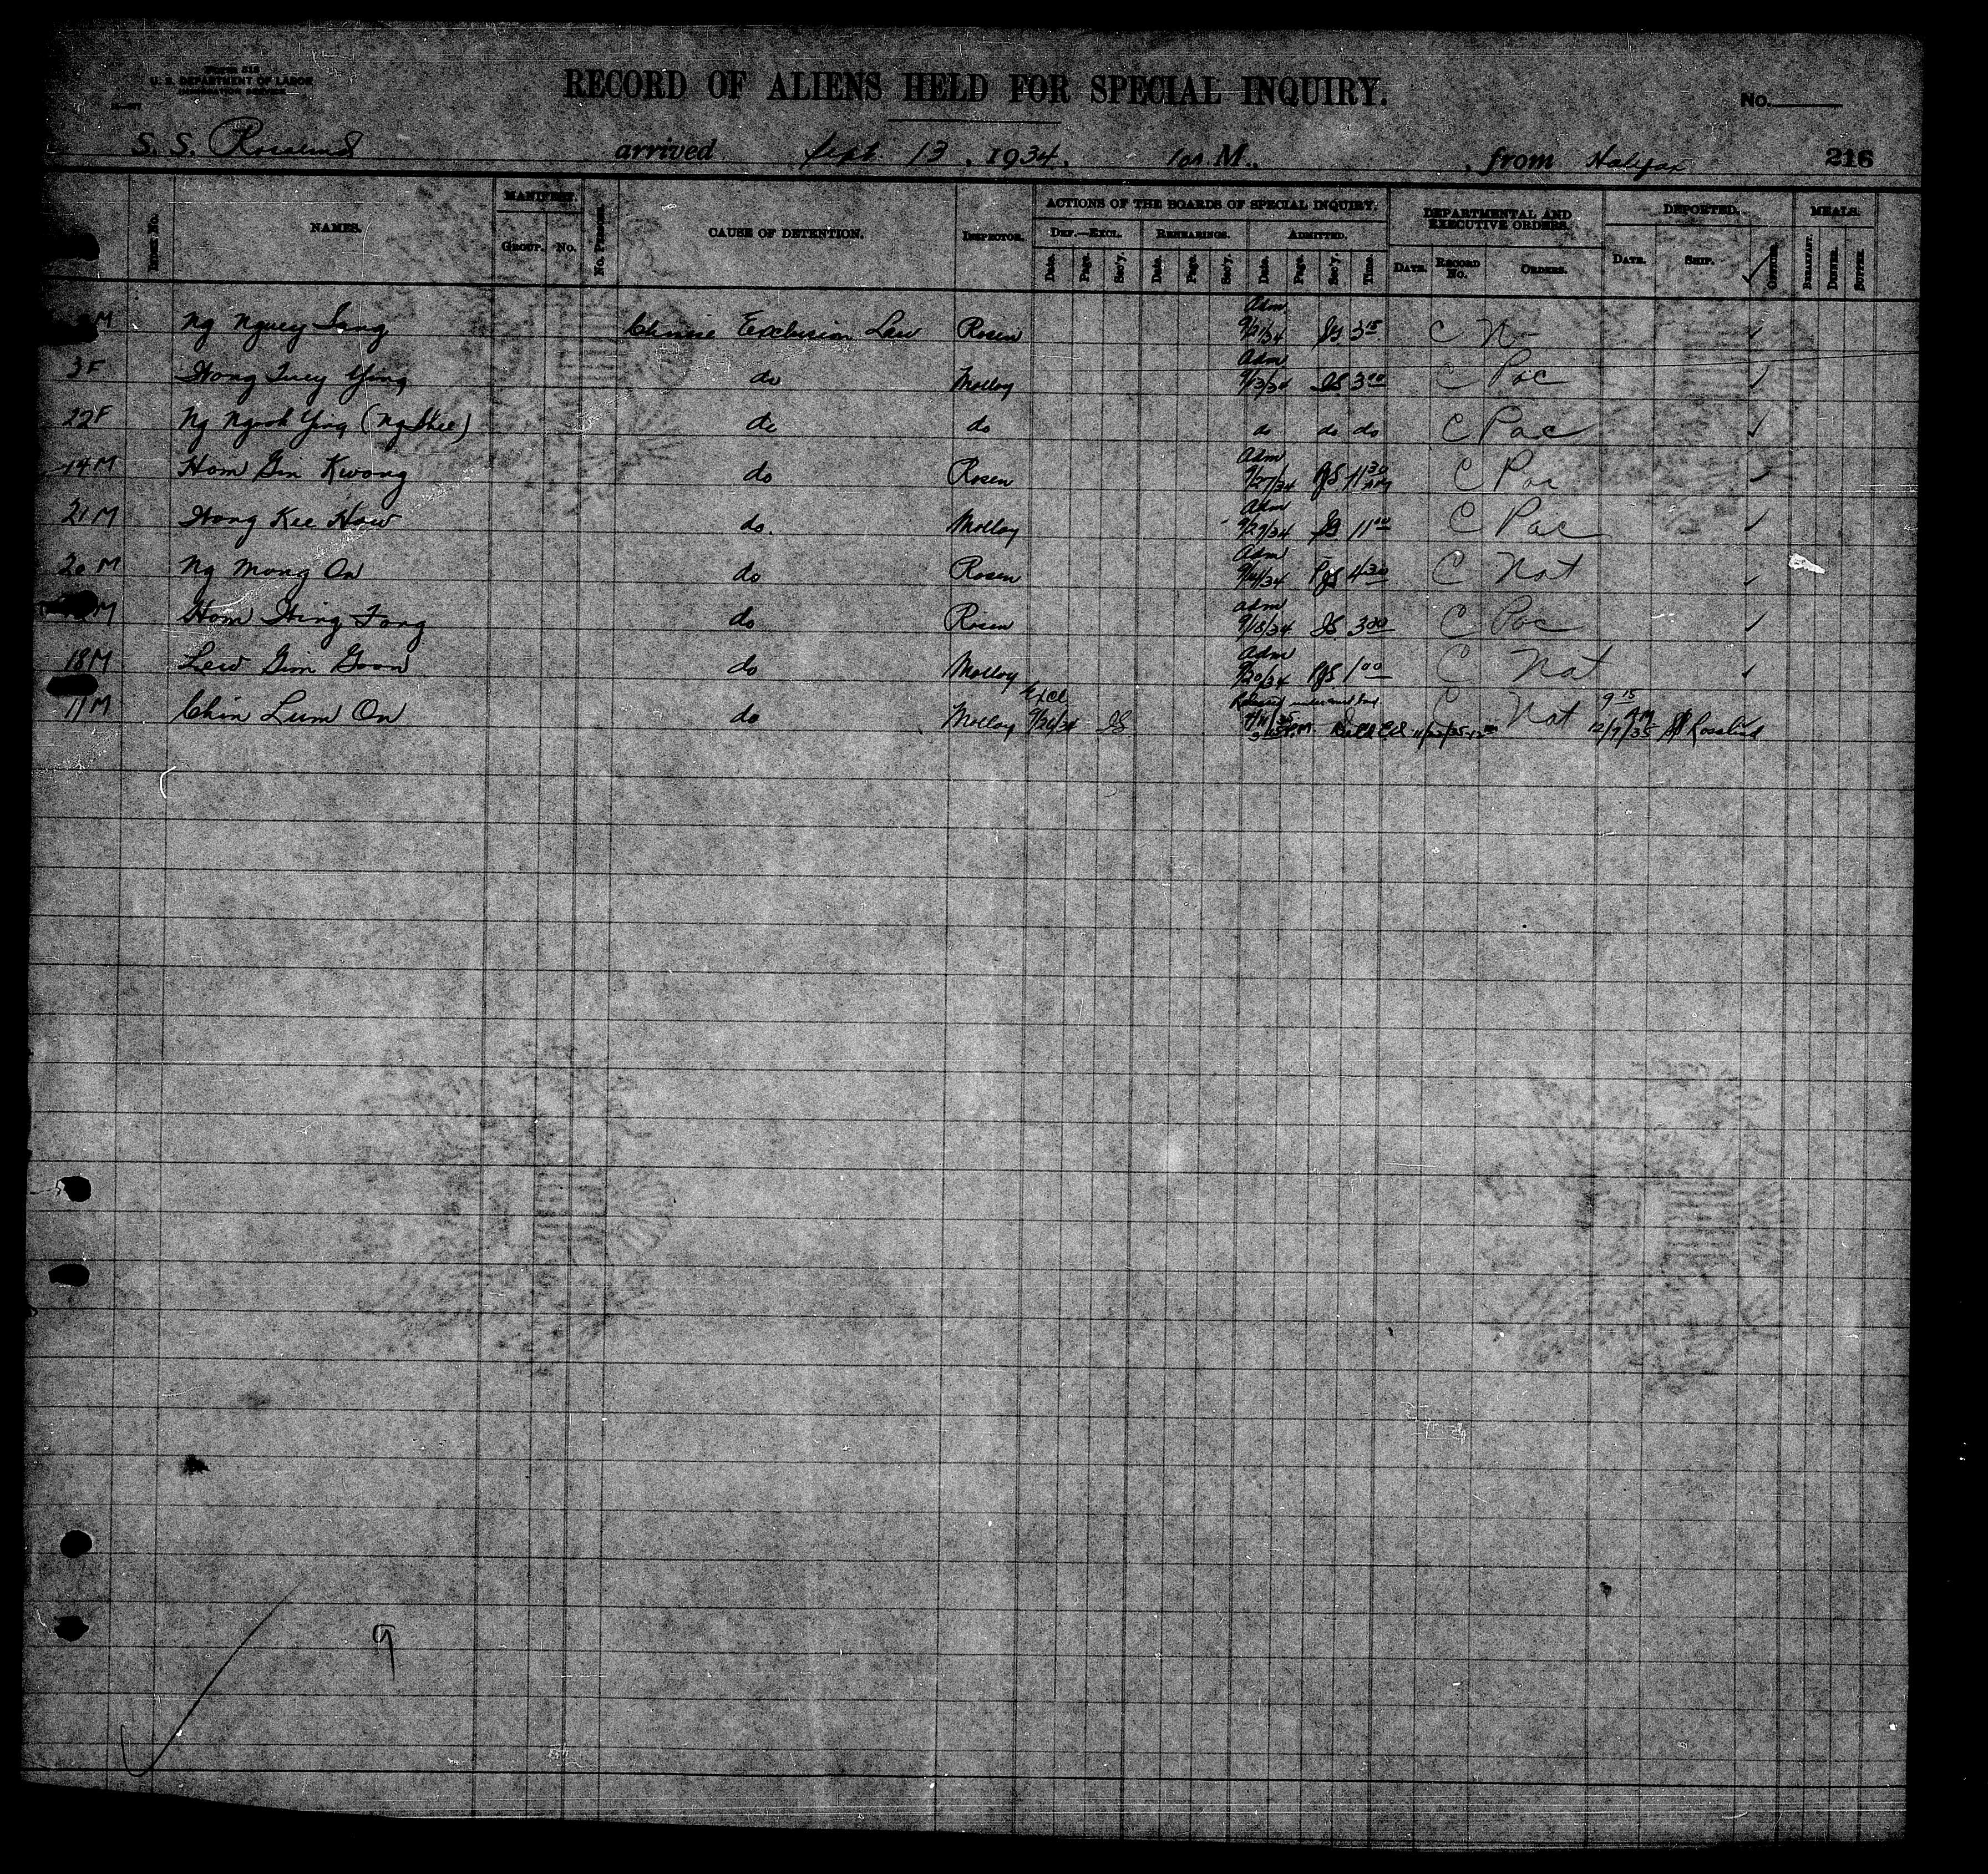 Form 515
U. S. DEPARTMENT OF LABOR
IMMIGRATION SERVICE
RECORD OF ALIENS HELD FOR SPECIAL INQUIRY.
No.
S. S. Rosalind arrived Sept. 13, 1934, M., from Halifax 216
INDEX NO. NAMES. MANIFEST. GROUP. NO. NO. PERSONS. CAUSE OF DETENTION. INSPECTOR. ACTIONS OF THE BOARDS OF SPECIAL INQUIRY. DEPARTMENTAL AND EXECUTIVE ORDERS. DEPORTED. MEALS.
DEF.—EXCL. REHEARINGS. ADMITTED.
Date. Page. Sec'y. Date. Page. Sec'y. Date. Page. Sec'y. Time. DATE. RECORD NO. ORDERS. DATE. SHIP. BREAKFAST. DINNER. SUPPER.
M Ng Nguey Sang Chinese Exclusion Law Rosen Adm 9/21/34 3 15 C N
3F Hong Tuey Ying do Molloy Adm 9/13/34 JS 3 00 C Pac ✓
22F Ng Ngook Ying (Ng Shee) do do do do do C Pac ✓
14M Hom Gin Kwong do Rosen Adm 9/27/34 RJS 11 30 AM C Pac ✓
21M Hong Kee How do. Molloy Adm 9/27/34 11 00 C Pac ✓
20M Ng Mong On do Rosen Adm 9/14/34 RJS 4 30 C Nat ✓
M Hom Hing Fong do Rosen Adm 9/18/34 JS 3 00 C Pac ✓
18M Lew Gim Goon do Molloy Adm 9/20/34 RJS 1 00 C Nat ✓
11M Chin Lum On do Molloy Excl 9/26/34 JS Released under C Nat 9 15 AM 12/7/35 SS Rosalind
9